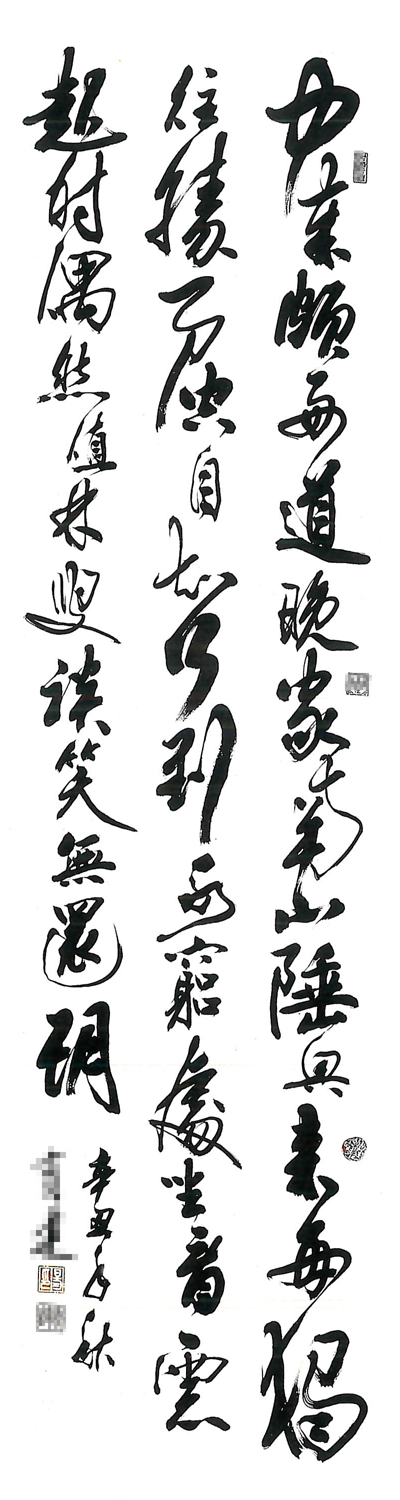 中歲頗好道晚家南山陲興來每獨
往勝事空自知行到水窮處坐看雲
起時偶然值林叟談笑無還期
辛丑年秋